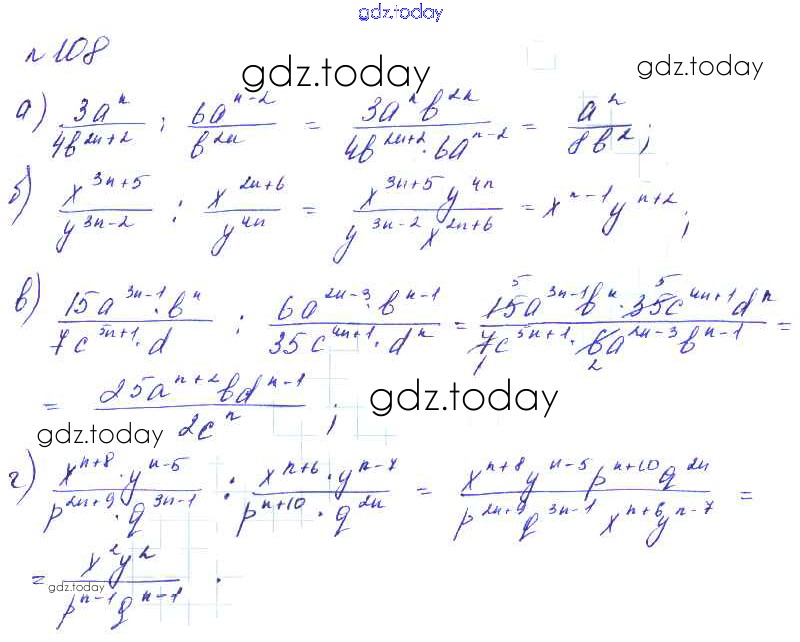 gdz.today
n 108
gdz.today gdz.today
а) 3a^n / 4b^(2n+2) : 6a^(n-2) / b^(2n) = 3a^n b^(2n) / 4b^(2n+2) · 6a^(n-2) = a^2 / 8b^2 ;
б) x^(3n+5) / y^(3n-2) : x^(2n+6) / y^(4n) = x^(3n+5) y^(4n) / y^(3n-2) x^(2n+6) = x^(n-1) y^(n+2) ;
в) 15a^(3n-1) · b^n / 7c^(5n+1) · d : 6a^(2n-3) · b^(n-1) / 35c^(4n+1) · d^n = 15a^(3n-1) b^n · 35c^(4n+1) d^n / 7c^(5n+1) · 6a^(2n-3) b^(n-1) =
= 25a^(n+2) bd^(n-1) / 2c^n ;
gdz.today gdz.today
г) x^(n+8) · y^(n-5) / p^(2n+9) · q^(3n-1) : x^(n+6) · y^(n-7) / p^(n+10) · q^(2n) = x^(n+8) y^(n-5) p^(n+10) q^(2n) / p^(2n+9) q^(3n-1) x^(n+6) y^(n-7) =
= x^2 y^2 / p^(n-1) q^(n-1) .
gdz.today